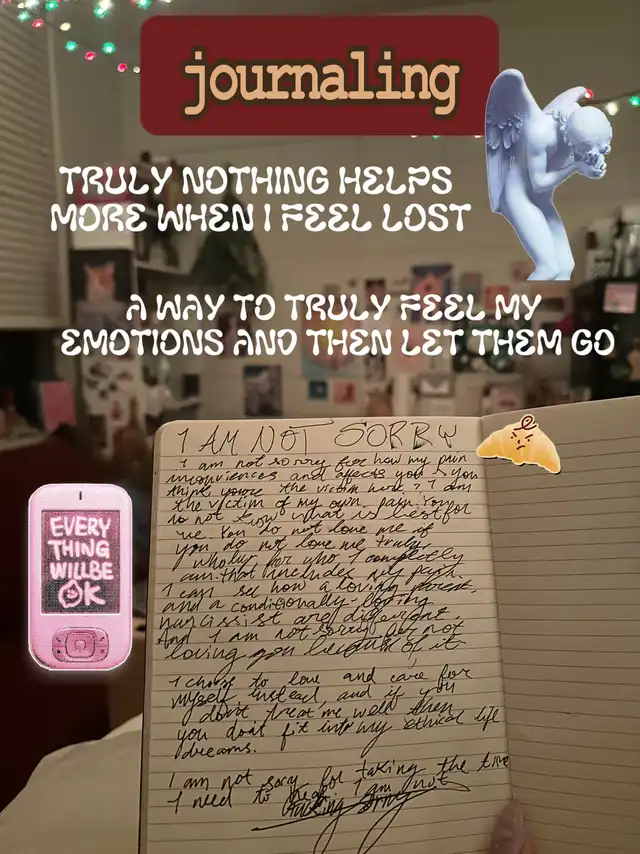 journaling
TRULY NOTHING HELPS
MORE WHEN I FEEL LOST
A WAY TO TRULY FEEL MY
EMOTIONS AND THEN LET THEM GO
EVERY
THING
WILL BE
OK
I AM NOT SORRY
I am not sorry for how my pain
inconviences and affects you. You
think you're the victim here? I am
the victim of my own pain. You
do not know what is best for
me. You do not love me if
you do not love me truly,
wholly for who I completely
am. that includes my pain.
I can see how a loving parent,
and a conditionally-loving
narcissist are different
And I am not sorry for not
loving you because of it
I choose to love and care for
myself instead, and if you
don't treat me well then
you don't fit into my ethical life
dreams.
I am not sorry for taking the time
I need to heal. I am not
fucking sorry